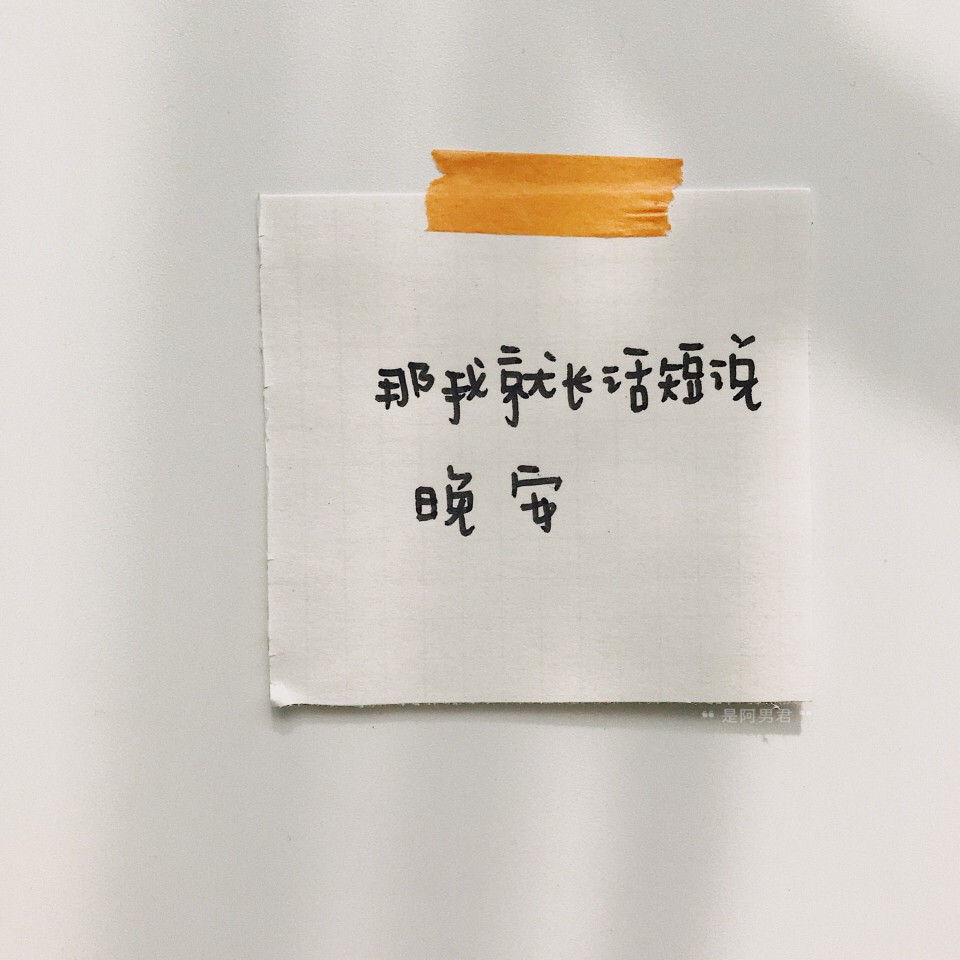 那我就长话短说
晚安
“ 是阿男君 ”